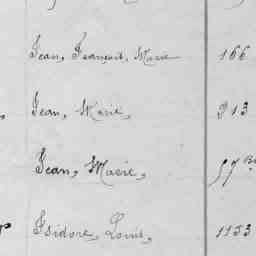 Jean, François, Marie 166
Jean, Marie, 913
Jean, Marie, 57 Bis
Isidore, Louis, 1153